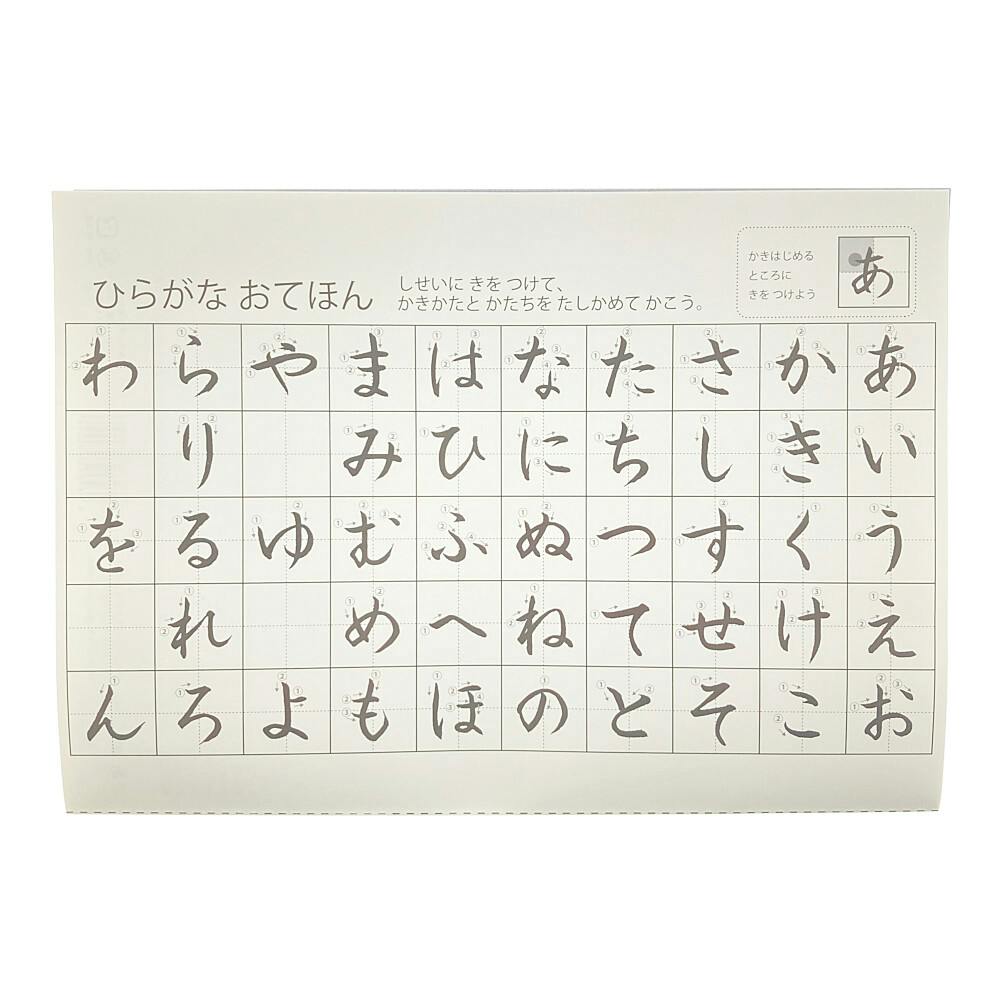 ひらがな おてほん
しせいに きを つけて、
かきかたと かたちを たしかめて かこう。
かきはじめる
ところに
きを つけよう
あ
あ い う え お
か き く け こ
さ し す せ そ
た ち つ て と
な に ぬ ね の
は ひ ふ へ ほ
ま み む め も
や ゆ よ
ら り る れ ろ
わ を ん